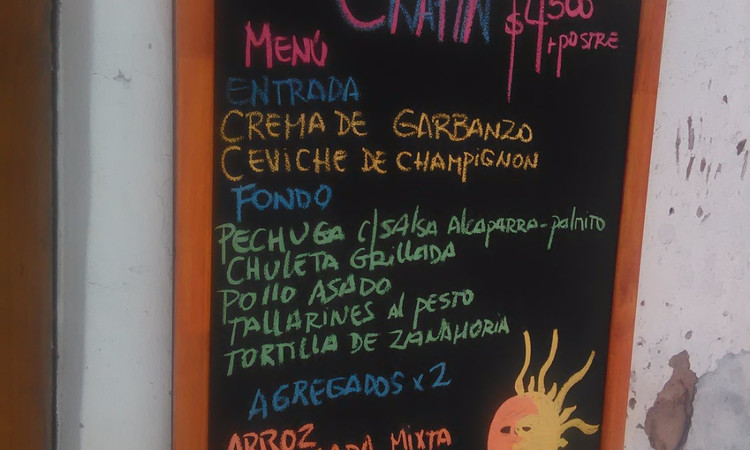 $4500
MENÚ
+POSTRE
ENTRADA
CREMA DE GARBANZO
CEVICHE DE CHAMPIGNON
FONDO
PECHUGA c/SAlSA AlCAPARRA-pAlMITO
CHULETA GRillADA
POllO ASADO
TALLARINES Al PESTO
TORTILLA DE ZANAHORIA
AGREGADOS x 2
ARROZ
MIXTA